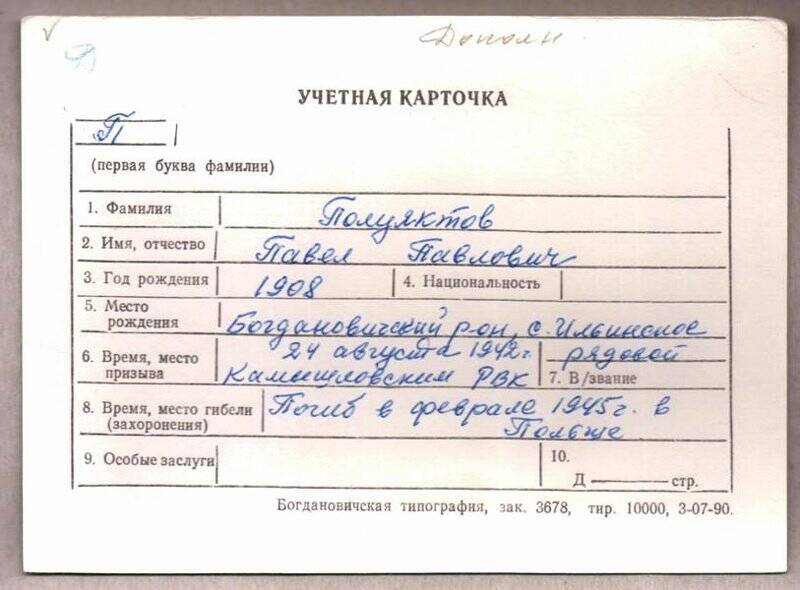 Дополн
Д
УЧЕТНАЯ КАРТОЧКА
П
(первая буква фамилии)
1. Фамилия Полуяктов
2. Имя, отчество Павел Павлович
3. Год рождения 1908 4. Национальность
5. Место
рождения Богдановичский р-он, с. Ильинское
6. Время, место 24 августа 1942г. рядовой
призыва Камышловским РВК 7. В/звание
8. Время, место гибели Погиб в феврале 1945г. в
(захоронения) Польше
9. Особые заслуги 10.
Д стр.
Богдановичская типография, зак. 3678, тир. 10000, 3-07-90.